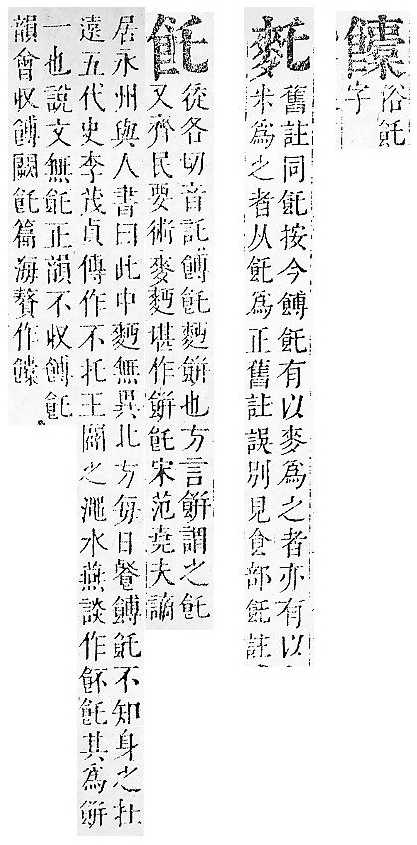 俗飥
字
𪌂
舊註同飥按今餺飥有以麥爲之者亦有以
米爲之者从飥爲正舊註誤別見食部飥註
飥
從各切音託餺飥麪餠也方言餠謂之飥
又齊民要術麥麪堪作餠飥宋范堯夫謫
居永州與人書曰此中麪無異北方每日餐餺飥不知身之在
遠五代史李茂貞傳作不托王闢之澠水燕談作飥其爲餠
一也說文無飥正韻不收餺飥
韻會收餺闕飥篇海贅作